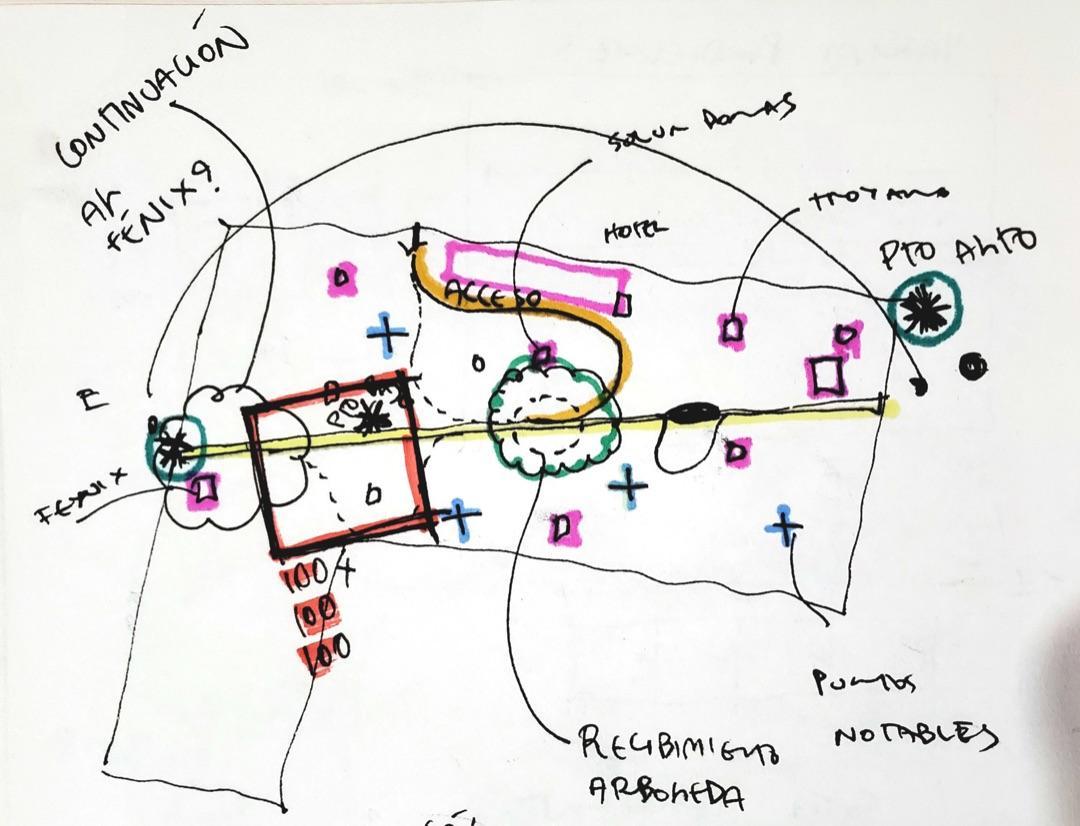 CONTINUACIÓN
AL
FÉNIX?
HOTEL
TROYANO
PTO ALTO
ACCESO
E
FENIX
100 +
100
100
PUNTOS
NOTABLES
RECIBIMIENTO
ARBOLEDA